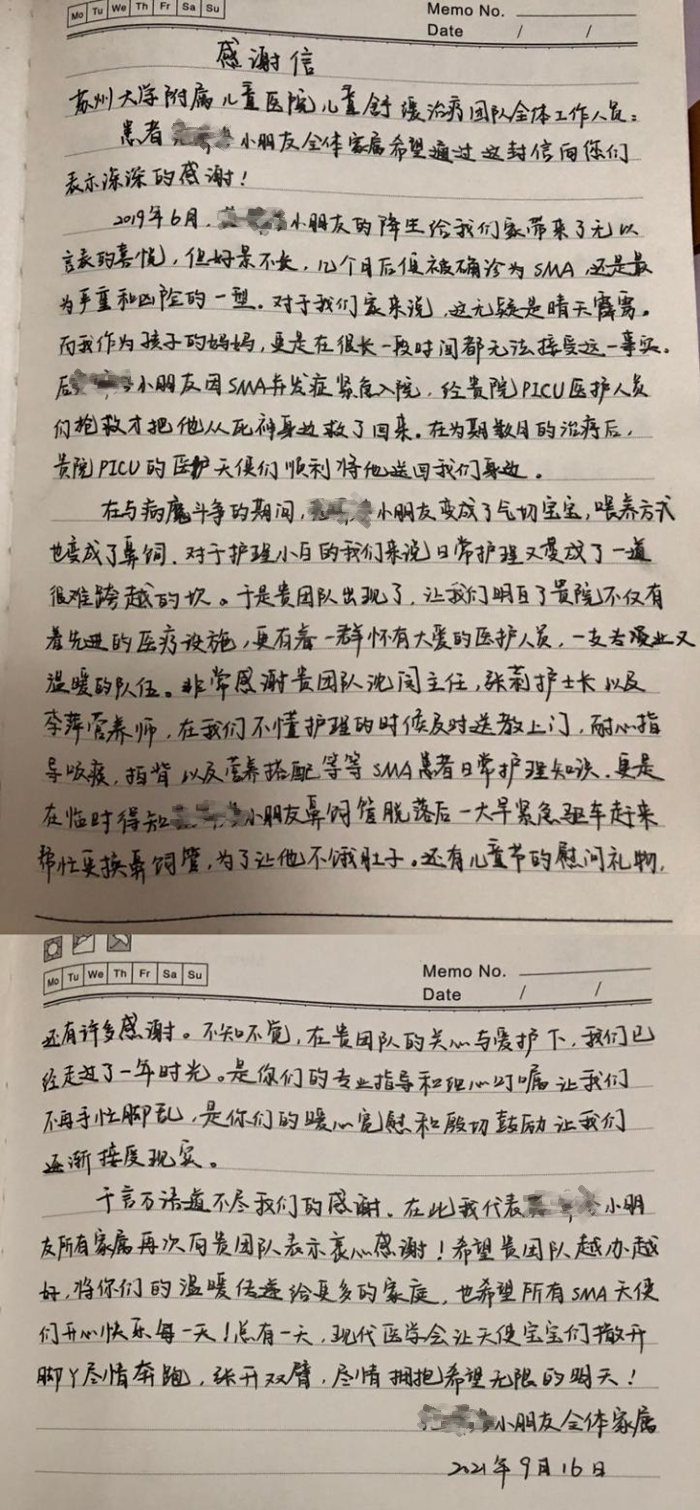 Mo Tu We Th Fr Sa Su
Memo No.
Date / /
感谢信
苏州大学附属儿童医院儿童舒缓治疗团队全体工作人员：
患者小朋友全体家属希望通过这封信向你们
表示深深的感谢！
2019年6月，小朋友的降生给我们家带来了无以
言表的喜悦，但好景不长，几个月后便被确诊为SMA，还是最
为严重和凶险的一型。对于我们家来说，这无疑是晴天霹雳。
而我作为孩子的妈妈，更是在很长一段时间都无法接受这一事实。
后小朋友因SMA并发症紧急入院，经贵院PICU医护人员
们抢救才把他从死神身边救了回来。在为期数月的治疗后，
贵院PICU的医护天使们顺利将他送回我们身边。
在与病魔斗争的期间，小朋友变成了气切宝宝，喂养方式
也变成了鼻饲，对于护理小白的我们来说日常护理又变成了一道
很难跨越的坎。于是贵团队出现了，让我们明白了贵院不仅有
着先进的医疗设施，更有着一群怀有大爱的医护人员，一支专业又
温暖的队伍。非常感谢贵团队沈闵主任，张莉护士长以及
李萍营养师，在我们不懂护理的时候及时送教上门，耐心指
导吸痰，拍背以及营养搭配等等SMA患者日常护理知识。更是
在临时得知小朋友鼻饲管脱落后一大早紧急驱车赶来
帮忙更换鼻饲管，为了让他不饿肚子。还有儿童节的慰问礼物，
Mo Tu We Th Fr Sa Su
Memo No.
Date / /
还有许多感谢。不知不觉，在贵团队的关心与爱护下，我们已
经走过了一年时光。是你们的专业指导和担心叮嘱让我们
不再手忙脚乱，是你们的暖心宽慰和殷切鼓励让我们
逐渐接受现实。
千言万语道不尽我们的感谢，在此我代表小朋
友所有家属再次向贵团队表示衷心感谢！希望贵团队越办越
好，将你们的温暖传递给更多的家庭，也希望所有SMA天使
们开心快乐每一天！总有一天，现代医学会让天使宝宝们撒开
脚丫尽情奔跑，张开双臂，尽情拥抱希望无限的明天！
小朋友全体家属
2021年9月16日